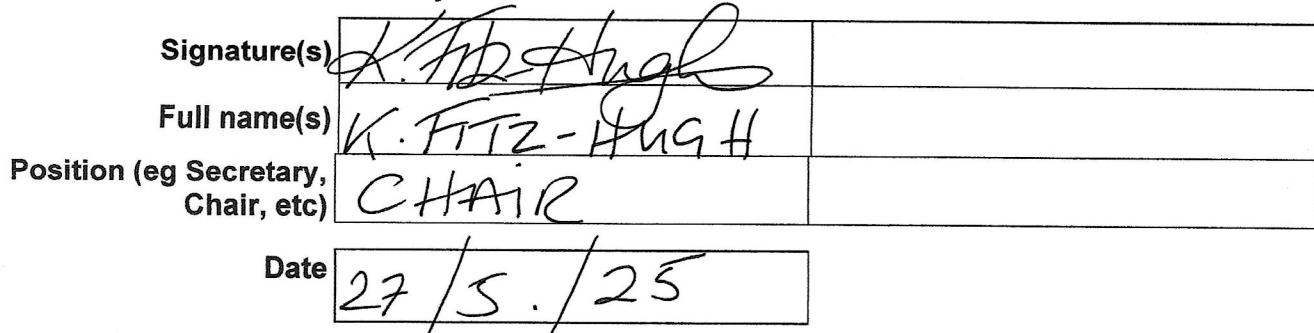 Signature(s) K. Fitz-Hugh
Full name(s) K. FITZ-HUGH
Position (eg Secretary,
Chair, etc) CHAIR
Date 27/5./25